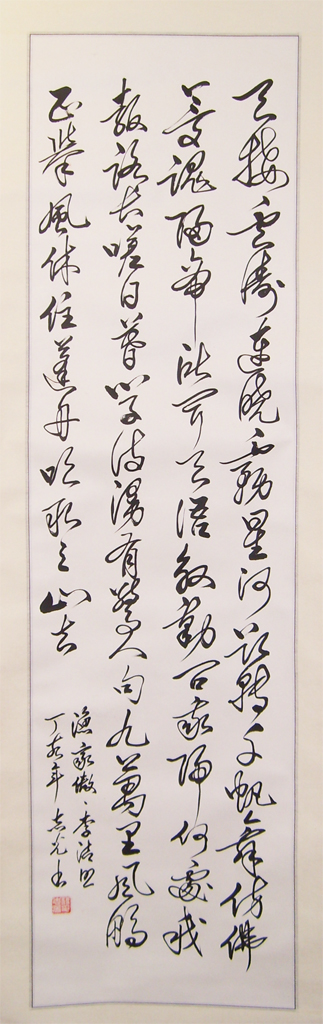 天接雲濤連曉霧星河欲轉千帆舞仿佛
夢魂歸帝所聞天語殷勤問我歸何處我
報路長嗟日暮學詩漫有驚人句九萬里風鵬
正舉風休住蓬舟吹取三山去
漁家傲、李清照
丁亥年